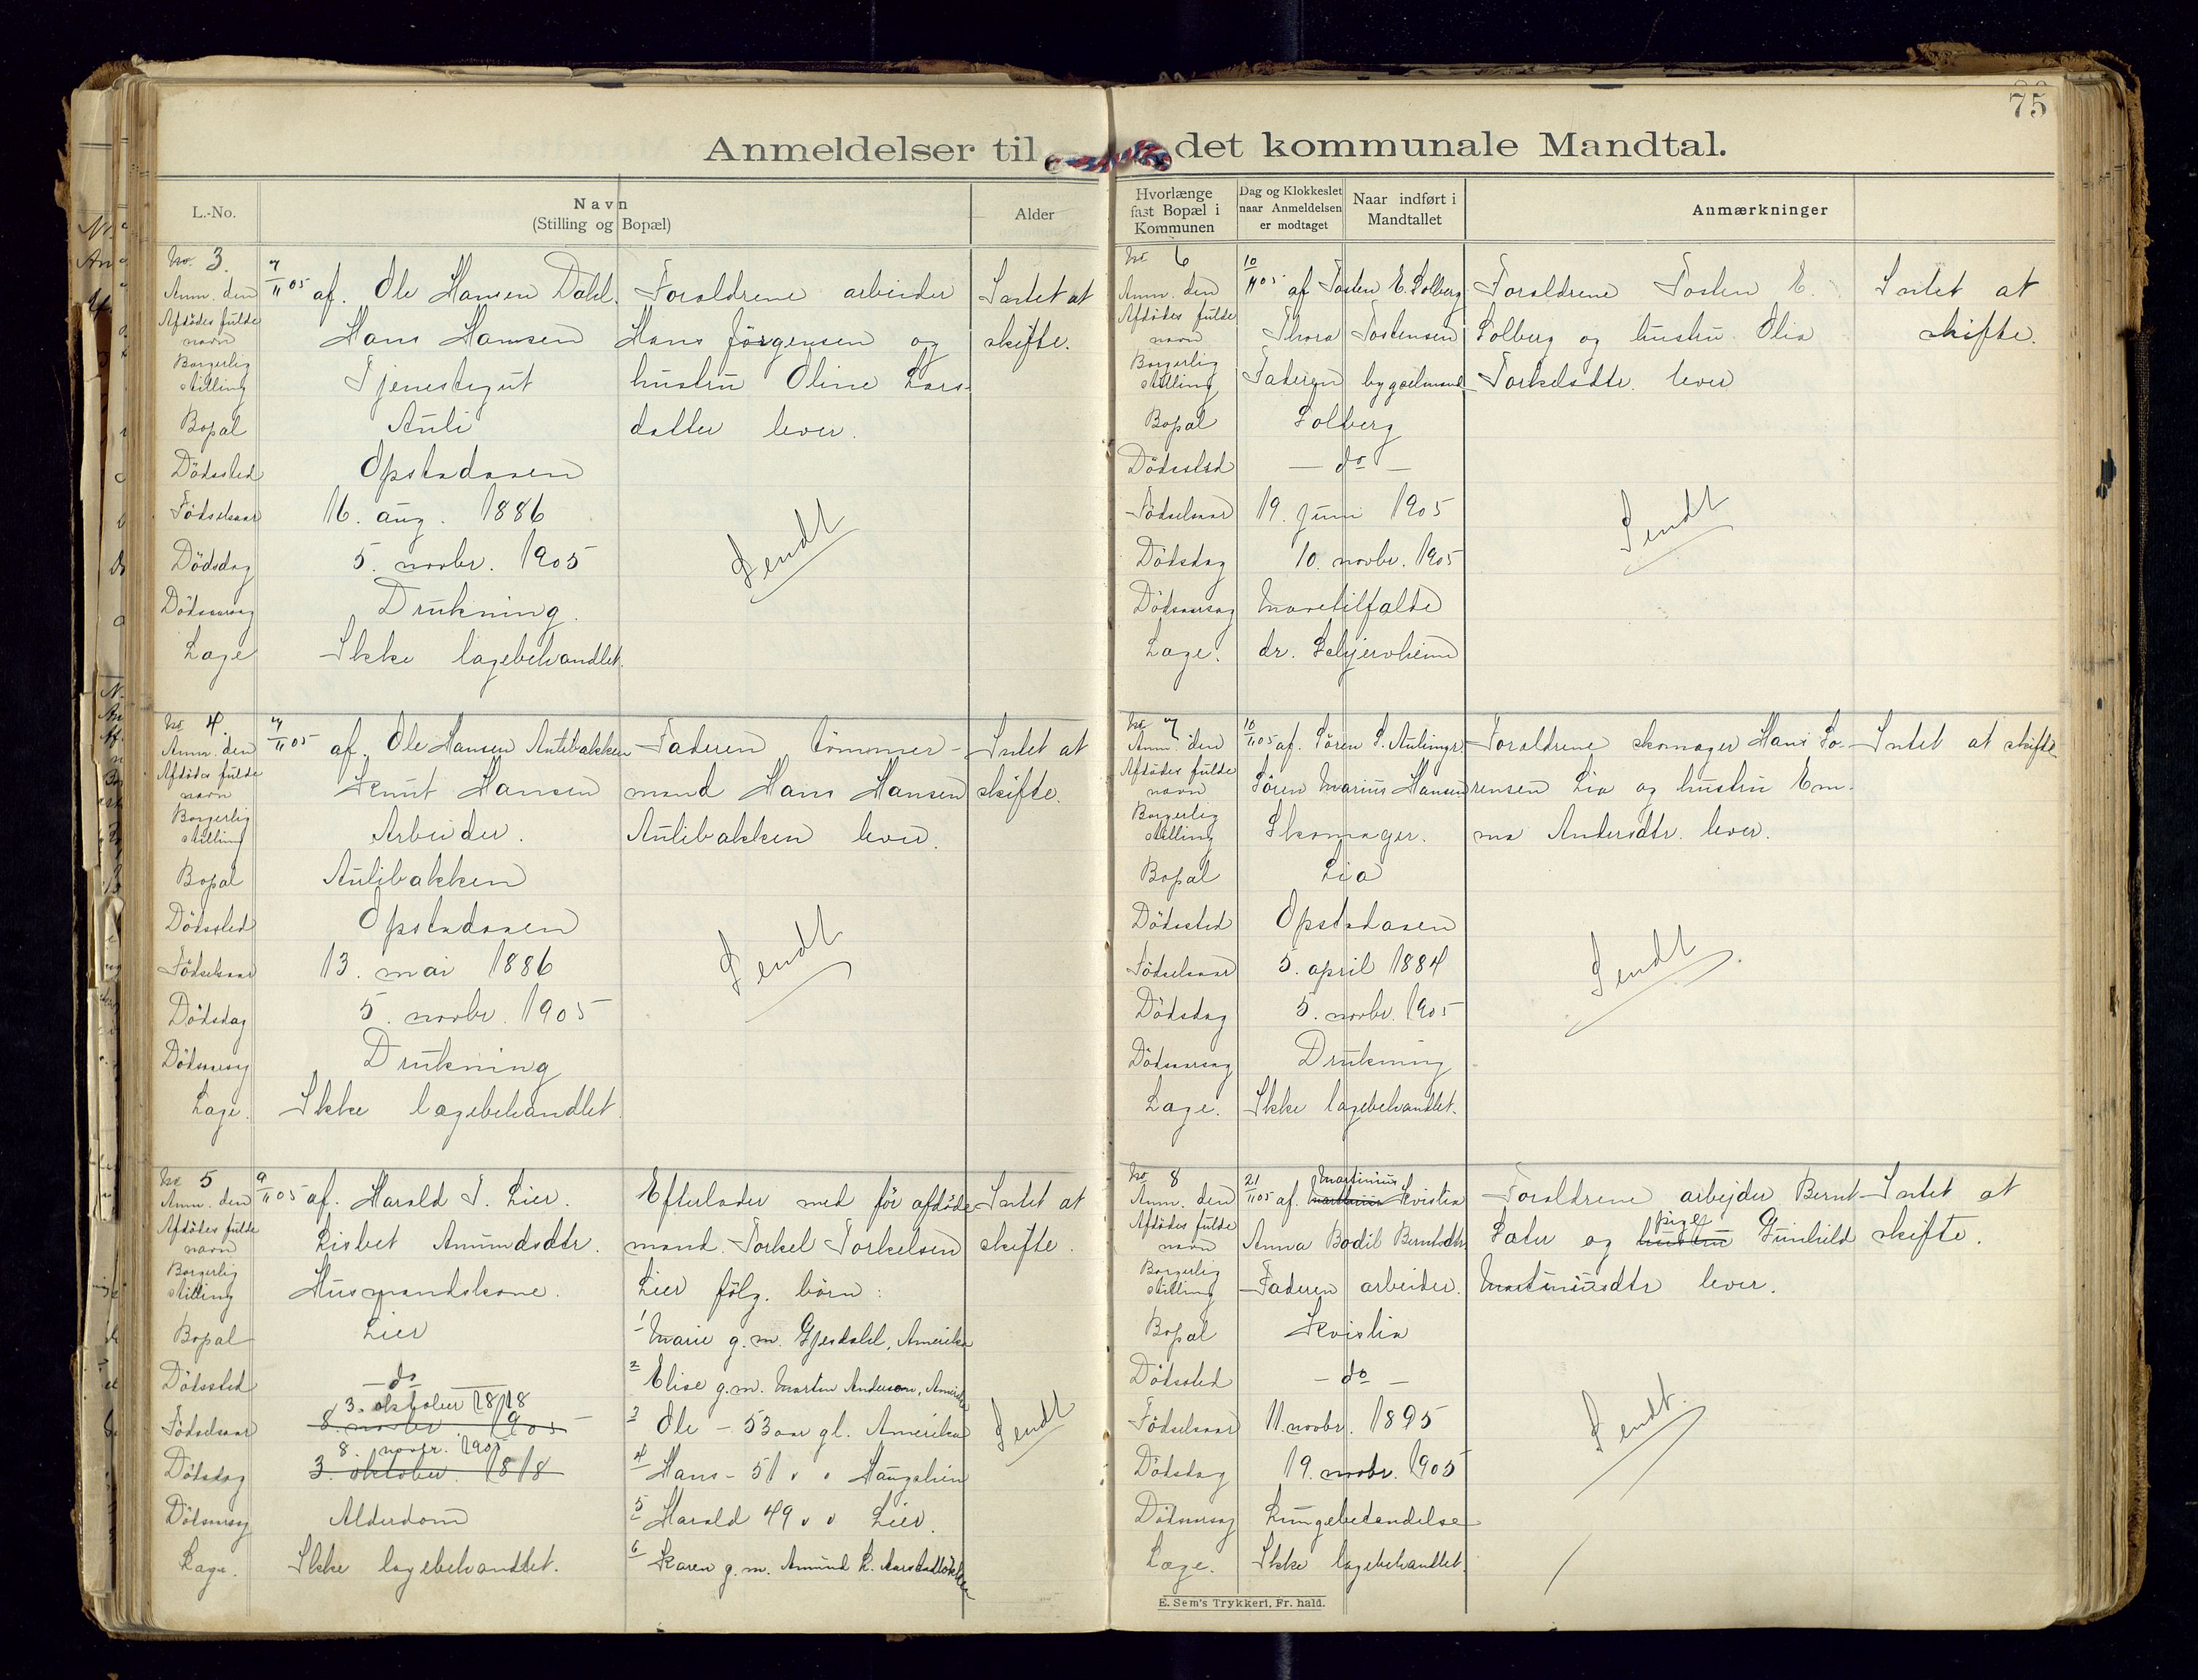 75
Anmeldelser til det kommunale Mandtal.
L.-No.
Navn
(Stilling og Bopæl)
Alder
Hvorlænge
fast Bopæl i
Kommunen
Dag og Klokkeslet
naar Anmeldelsen
er modtaget
Naar indført i
Mandtallet
Anmærkninger
No. 3.
Anm. den 7/11 05 af. Ole Hansen Dahl. Foraldrene arbeider Intet at
Afdödes fulde navn Hans Hansen Hans Jörgensen og skifte.
Borgerlig stilling Tjenestegut hustru Oline Lars-
Bopal Auli datter lever.
Dödssted Opstadaaen
Födselsaar 16. aug. 1886
Dödsdag 5. novbr. 1905 Sendt
Dödsaarsag Drukning.
Læge Ikke lægebehandlet.
No 4.
Anm. den 7/11 05 af. Ole Hansen Aulibakken Faderen tömmer- Intet at
Afdödes fulde navn Knut Hansen mand Hans Hansen skifte.
Borgerlig stilling Arbeider. Aulibakken lever.
Bopal Aulibakken
Dödssted Opstadaaen
Födselsaar 13. mai 1886 Sendt
Dödsdag 5. novbr. 1905
Dödsaarsag Drukning
Læge. Ikke lægebehandlet.
No 5
Anm. den 9/11 05 af. Harald T. Lier. Efterlader med för afdöde Intet at
Afdödes fulde navn Lisbet Amundsdtr. mand. Torkel Torkelsen skifte.
Borgerlig stilling Husmandskone. Lier fölg. börn:
Bopal Lier 1 Marie g. m. Gjesdahl, Amerika
Dödssted - do - 2 Elise g. m. Martin Anderson, Amerika
3. oktober 1818
Födselsaar 8. novbr 1905 3 Ole - 53 aar gl. Amerika Sendt
8. novbr. 1905
Dödsdag 3. oktober. 1818 4 Hans - 51 " "
Dödsaarsag Alderdom 5 Harald 49 " " Lier.
Læge. Ikke lægebehandlet. 6 Karen g. m. Amund L.
No 6
Anm. den 10/11 05 af Tosten E. Solberg Foraldrene Tosten E. Intet at
Afdödes fulde navn Thora Tostensen Solberg og hustru Olia skifte.
Borgerlig stilling Faderen bygselmand Torkelsdtr. lever
Bopal Solberg
Dödssted - do -
Födselsaar 19. juni 1905 Sendt
Dödsdag 10. novbr. 1905
Dödsaarsag Mavetilfælde
Læge. dr. Schjervheim
No 7
Anm. den 10/11 05 af. Sören S. Foraldrene skomager Hans Sö- Intet at skifte
Afdödes fulde navn Sören Marius Hansen rensen Lia og hustru Em-
Borgerlig stilling Skomager. ma Andersdtr. lever.
Bopal Lia
Dödssted Opstadaaen
Födselsaar 5. april 1884 Sendt
Dödsdag 5. novbr. 1905
Dödsaarsag Drukning
Læge. Ikke lægebehandlet.
No 8
Martinius
Anm. den 21/11 05 af. Kvislia Foraldrene arbejder Bernt Intet at
pige
Afdödes fulde navn Anna Bodil Berntsdtr Sæter og hustru Gunhild skifte.
Borgerlig stilling Faderen arbeider. Martiniusdtr lever.
Bopal Kvislia
Dödssted - do -
Födselsaar 11. novbr. 1895 Sendt.
Dödsdag 19. novbr. 1905
Dödsaarsag Lungebetændelse
Læge. Ikke lægebehandlet.
E. Sem's Trykkeri, Fr. hald.